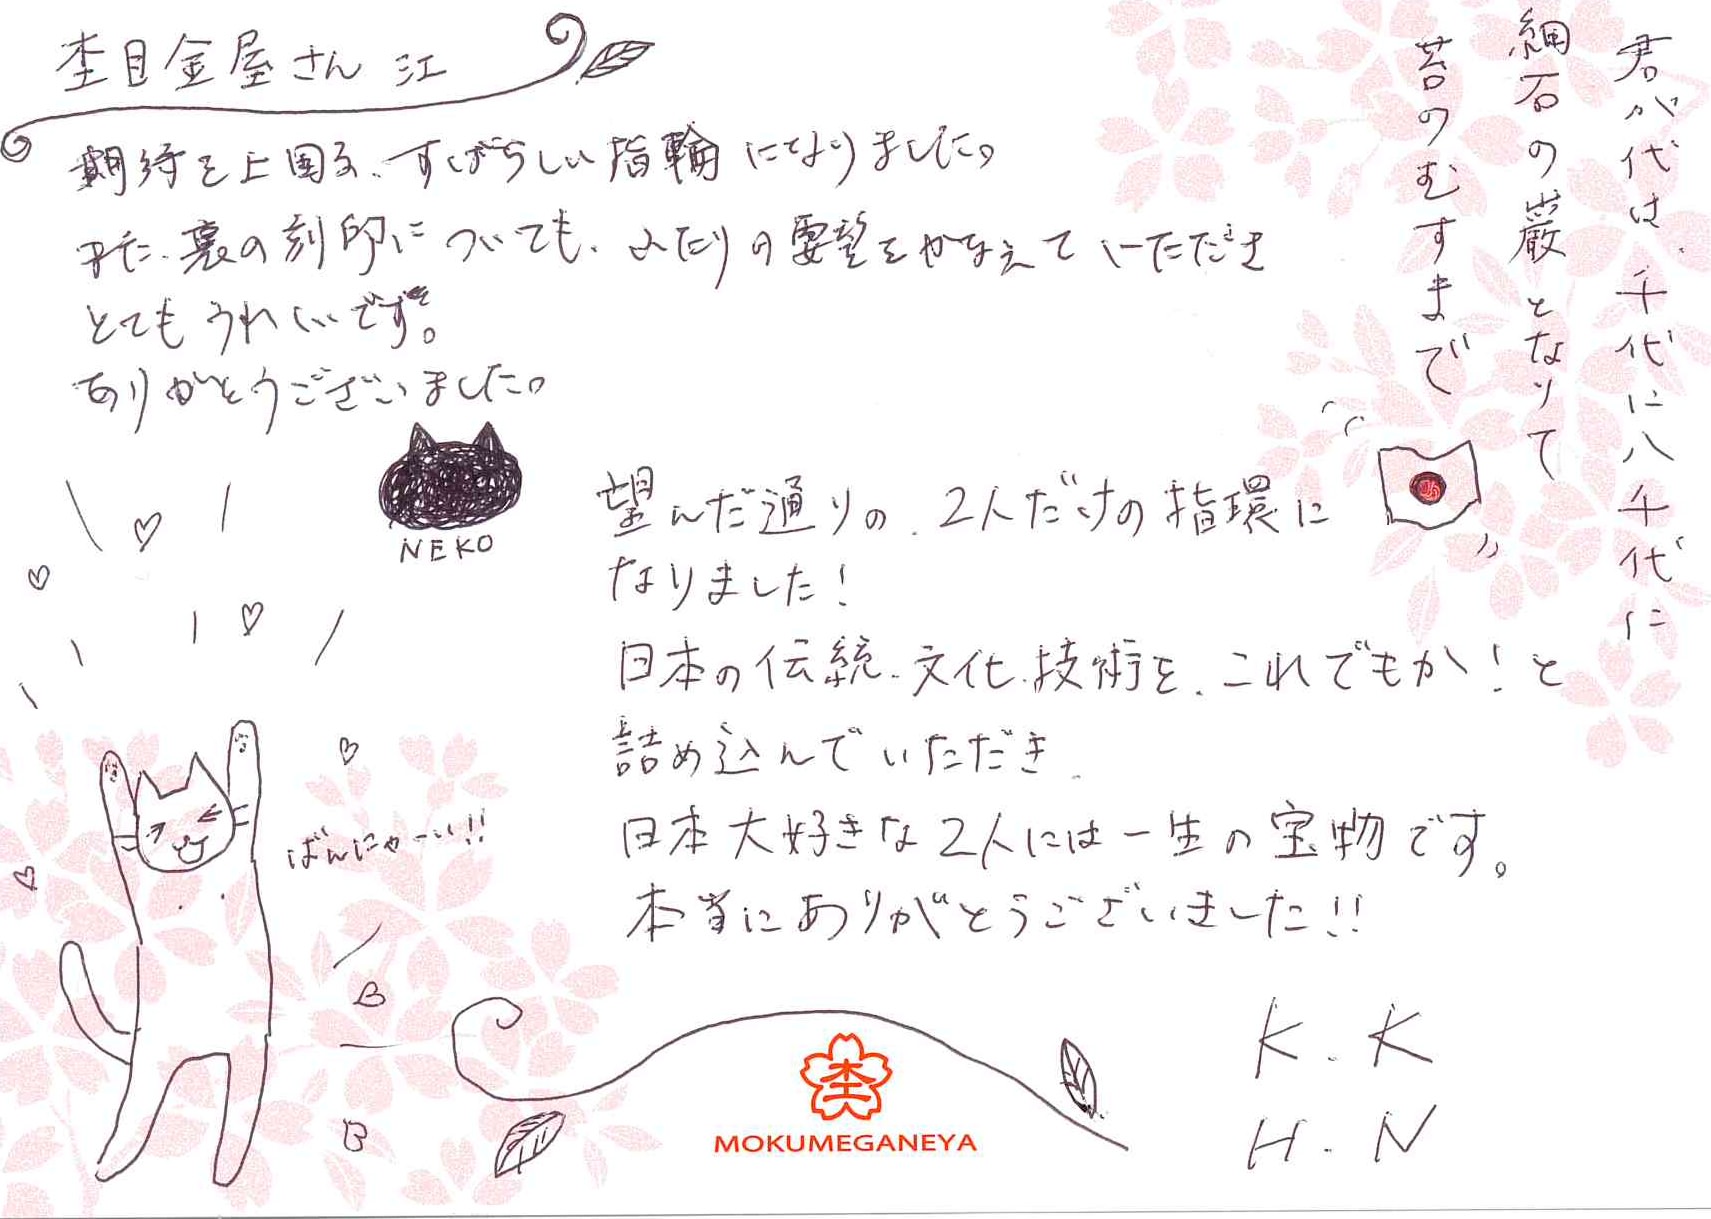 杢目金屋さん江
期待を上回る、すばらしい指輪になりました。
また、裏の刻印についても、ふたりの要望をかなえていただき
とてもうれしいです。
ありがとうございました。
君が代は、千代に八千代に
細石の巌となりて
苔のむすまで
NEKO
望んだ通りの、2人だけの指環に
なりました！
日本の伝統、文化、技術を、これでもか！と
詰め込んでいただき、
日本大好きな2人には一生の宝物です。
本当にありがとうございました!!
ばんにゃーい!!
K.K
H.N
杢
MOKUMEGANEYA